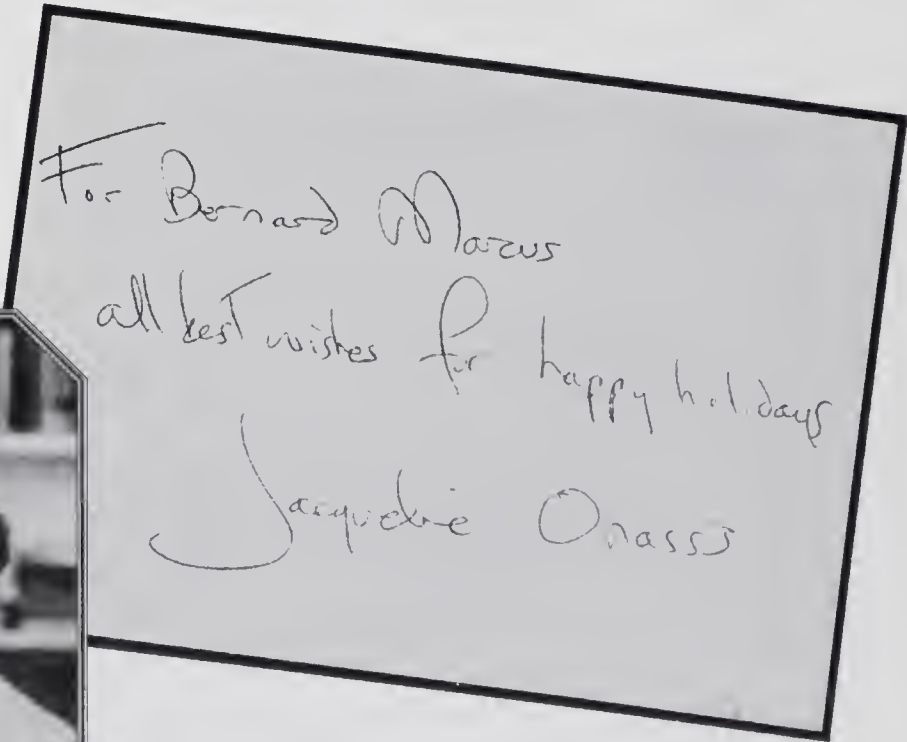 For Bernard Marcus
all best wishes for happy holidays
Jacqueline Onassis